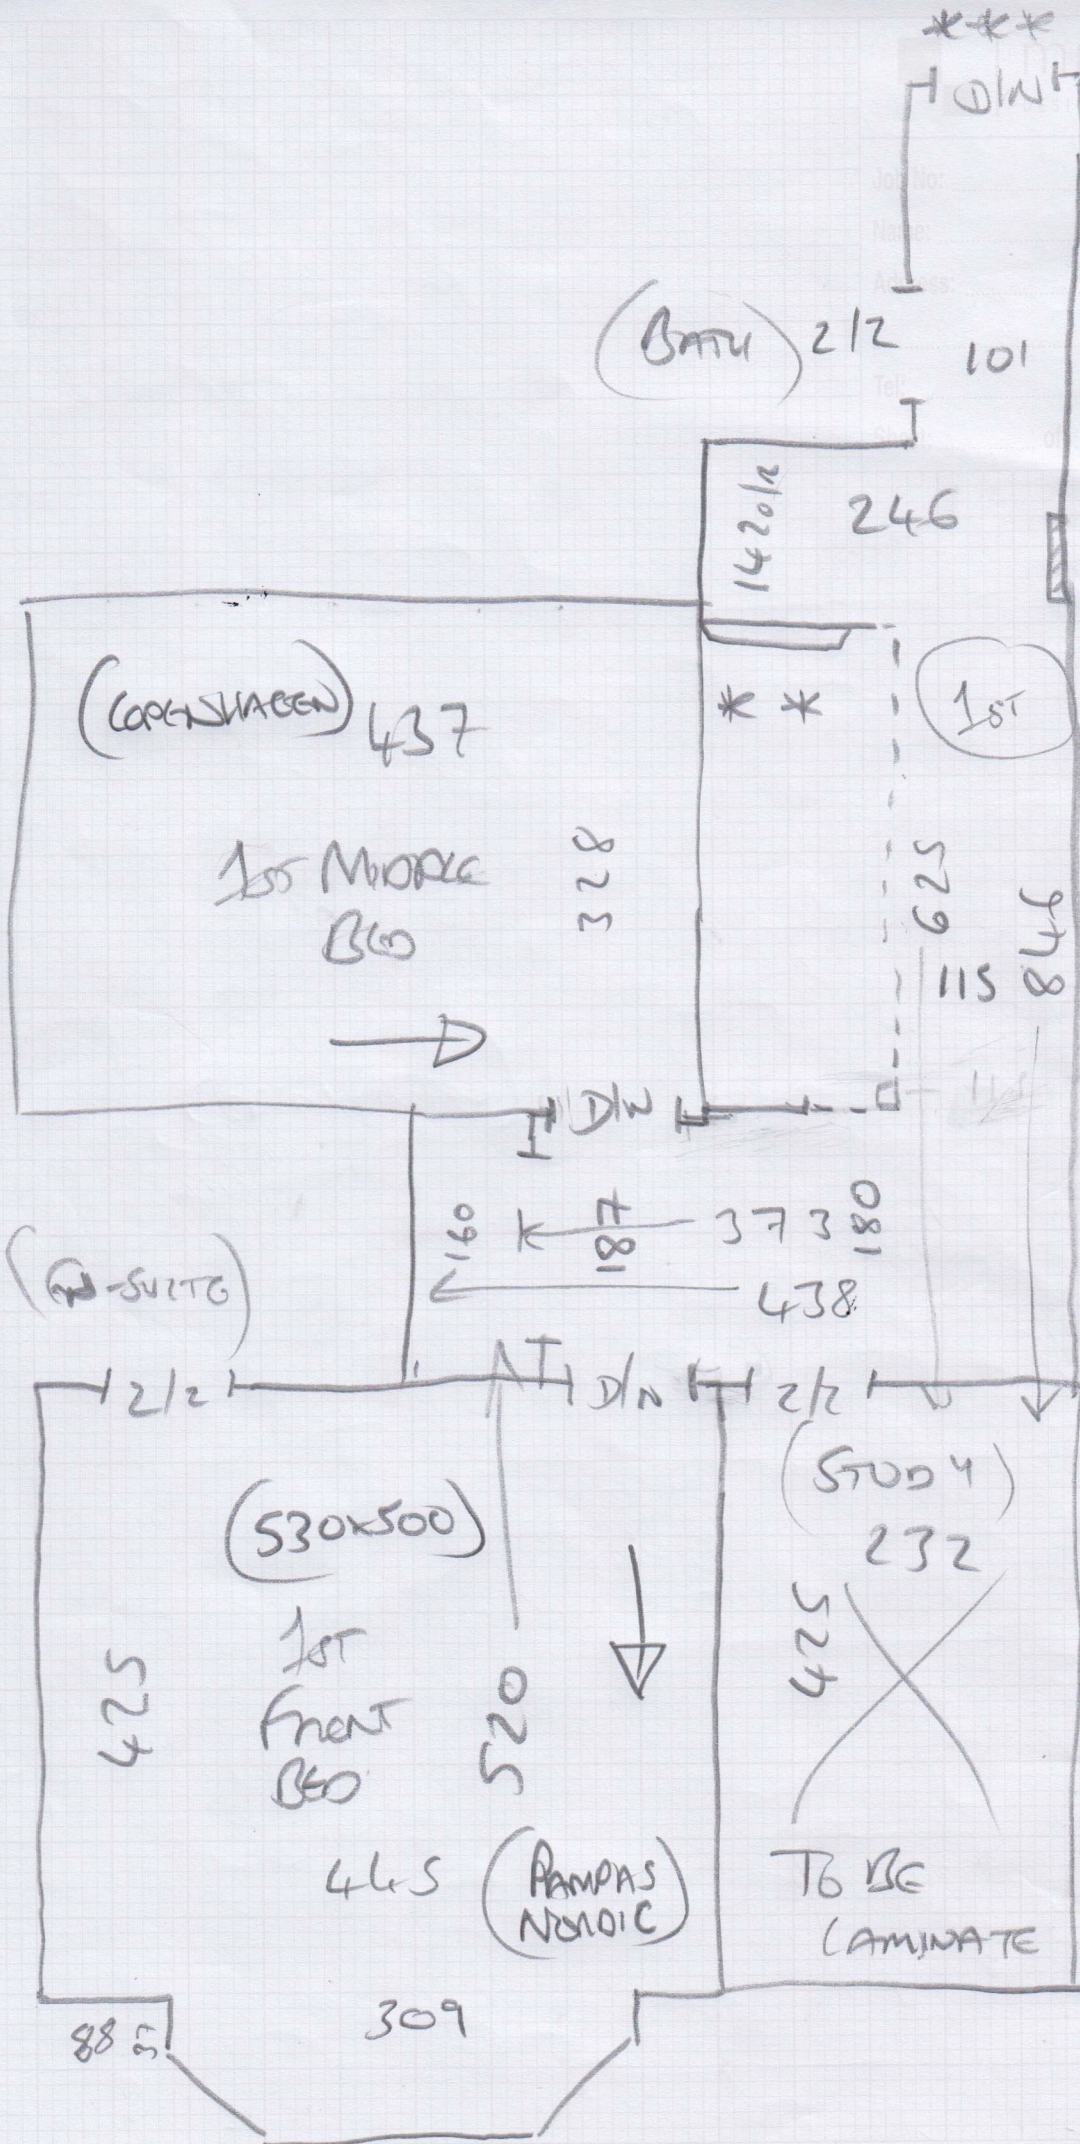 ***
D/N
Job No:
Name:
Address:
Tel:
(BATH) 2/2
101
142 o/R
246
(COPENHAGEN) 437
* *
1ST
1ST MIDDLE
BED
328
625
846
115
D/N
160
187
373
180
438
(EN-SUITE)
2/2
D/N
2/2
(STUDY)
232
(530x500)
425
1ST
FRONT
BED
425
520
445
(PAMPAS
NORDIC)
TO BE
LAMINATE
309
88